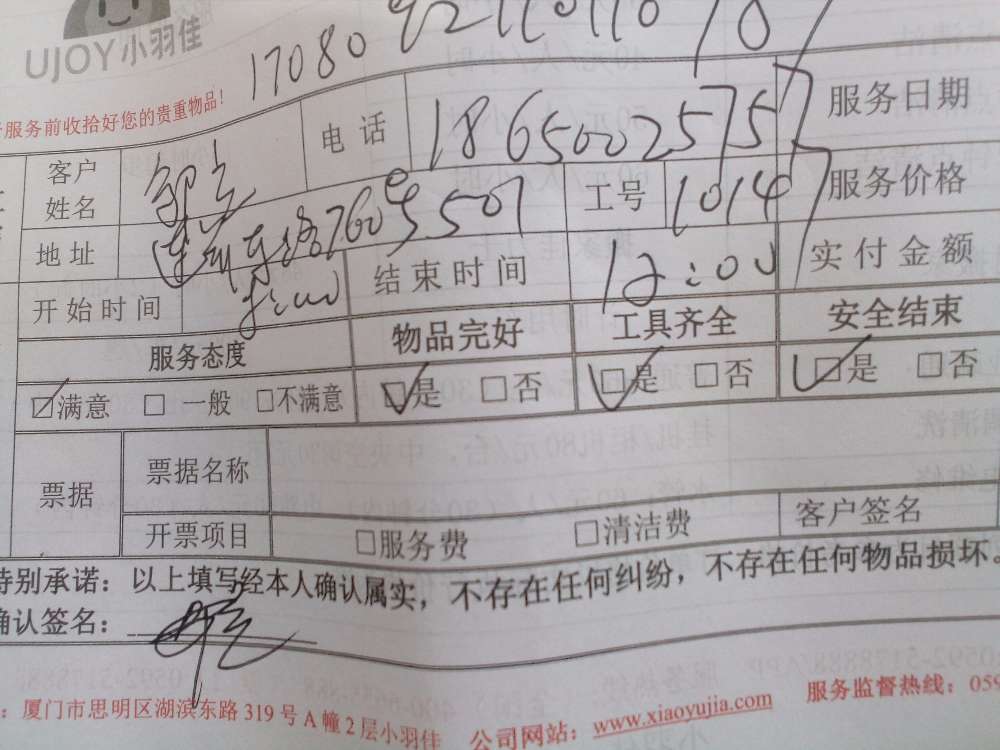 UJOY小羽佳
服务前收拾好您的贵重物品!
客户姓名 电话 18650025757 服务日期
地址 7609 5501 工号 1014 服务价格
开始时间 结束时间 12:00 实付金额
服务态度 物品完好 工具齐全 安全结束
☑满意 □一般 □不满意 ☑是 □否 ☑是 □否 ☑是 □否
票据 票据名称
开票项目 □服务费 □清洁费 客户签名
特别承诺：以上填写经本人确认属实，不存在任何纠纷，不存在任何物品损坏。
确认签名：
：厦门市思明区湖滨东路319号A幢2层小羽佳 公司网站：www.xiaoyujia.com 服务监督热线：059